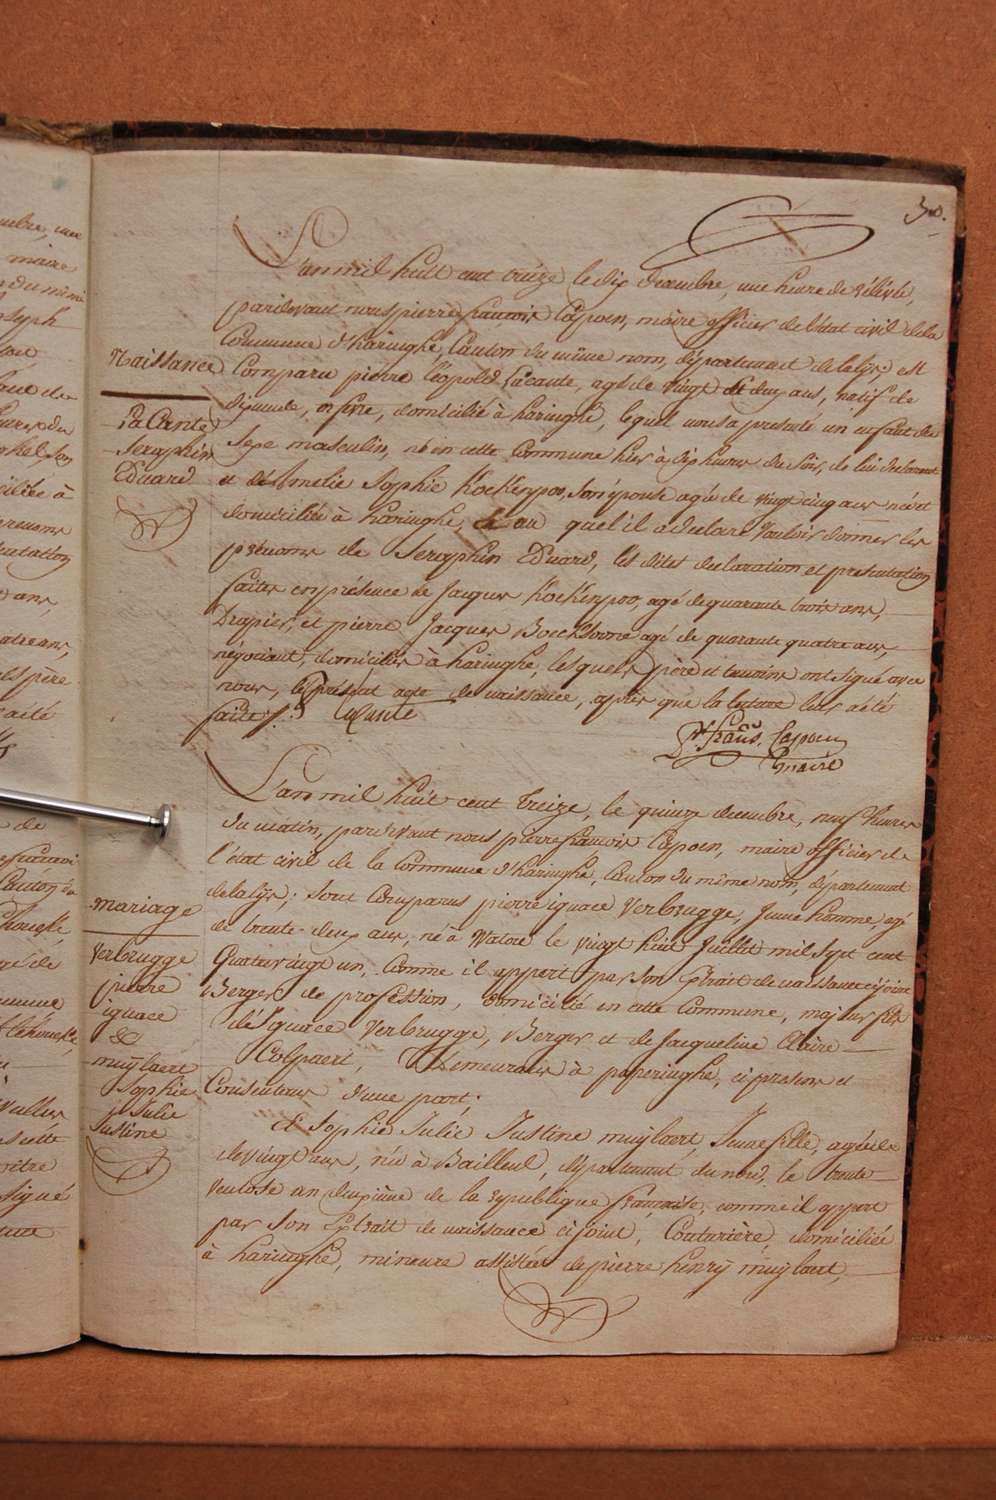 30.
L'an mil huit cent treize le dix decembre, une heure de rélévée,
pardevant nous pierre françois Capoen, maire officier de l'état civil de la
Commune d'haringhe, Canton du même nom, département de la lys: est
Comparu pierre léopold lacante, agé de vingt et deux ans, natif de
domicilié à haringhe, lequel nous a presenté un enfant du
Sexe masculin, né en cette Commune hier à dix heures du Soir, de lui declarant
et d'Amelie Sophie KocKenpoo, Son épouse agée de vingt cinq ans
domiciliée à haringhe, au quel il a declaré Vouloir donner les
prénoms de Seraphin Eduard, les dites declaration et presentation
faites en présence de Jacques KocKenpoo, agé de quarante trois ans,
Drapier, et pierre Jacques agé de quarante quatre ans,
négociant, domiciliés à haringhe, lesquels père et temoins ont signé avec
nous, le présent acte de naissance, après que la lecture leur a été
faite ./. Lacante
p. francs. Capoen
maire
Naissance
LaCante
Seraphin
Eduard
L'an mil huit cent treize, le quinze decembre, neuf heures
du matin, pardevant nous pierre françois Capoen, maire officier de
l'état civil de la Commune d'haringhe, Canton du même nom, département
de la lys; Sont Comparus pierre ignace Verbrugge, Jeune homme, agé
de trente-deux ans, né à Watou le vingt huit Juillet mil Sept cent
Quatrevingt un, Comme il appert par Son Extrait de naissance ci joint
Berger de profession, domicilié en cette Commune, majeur fils
d'Ignace Verbrugge, Berger et de Jacqueline Claire
Colpaert, Demeurans à poperinghe, ci présens et
Consentans d'une part.
Et Sophie Julie Justine muÿlaert, Jeune fille, agée de
de vingt ans, née à Bailleul, département du nord, le trente
ventose an deuxième de la république française, comme il appert
par Son Extrait de naissance ci joint, Couturière, domiciliée
à haringhe, mineure assistée de pierre henrÿ muÿlaert,
mariage
Verbrugge
pierre
ignace
&
muÿlaert
Sophie
Julie
Justine